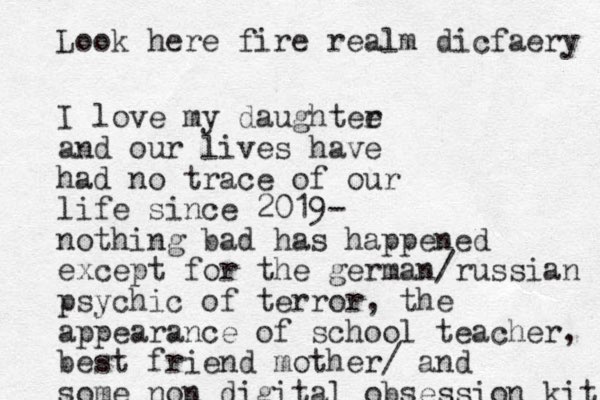 Look here fire realm dicfaery
I love my daughter
and our lives have
had no trace of our
life since 2019-
nothing bad has happened
except for the german/russian
psychic of terror, the
appearance of school teacher,
best friend mother/ and
some non digital obsession kit